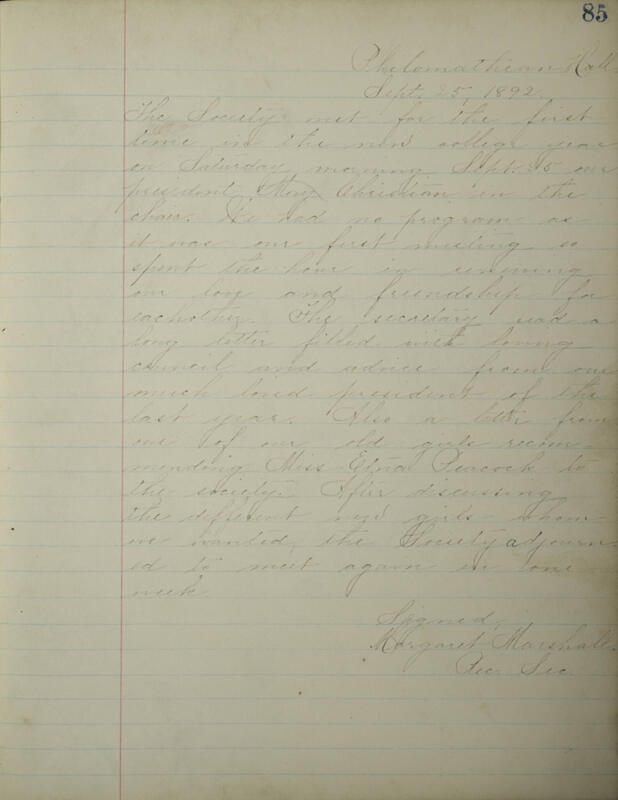 85
Philomathean Hall
Sept. 25, 1892.
The Society met for the first
time in the new college year
on Saturday morning Sept. 25 our
president May Christian in the
chair. We had no program as
it was our first meeting so
spent the hour in renewing
our love and friendship for
eachother. The secretary read a
long letter filled with loving
council and advice from our
much loved president of the
last year. Also a letter from
one of our old girls recom-
mending Miss Edna Peacock to
the society. After discussing
the different new girls whom
we wanted, the Society adjourn-
ed to meet again in one
week
Signed,
Margaret Marshall.
Rec. Sec.